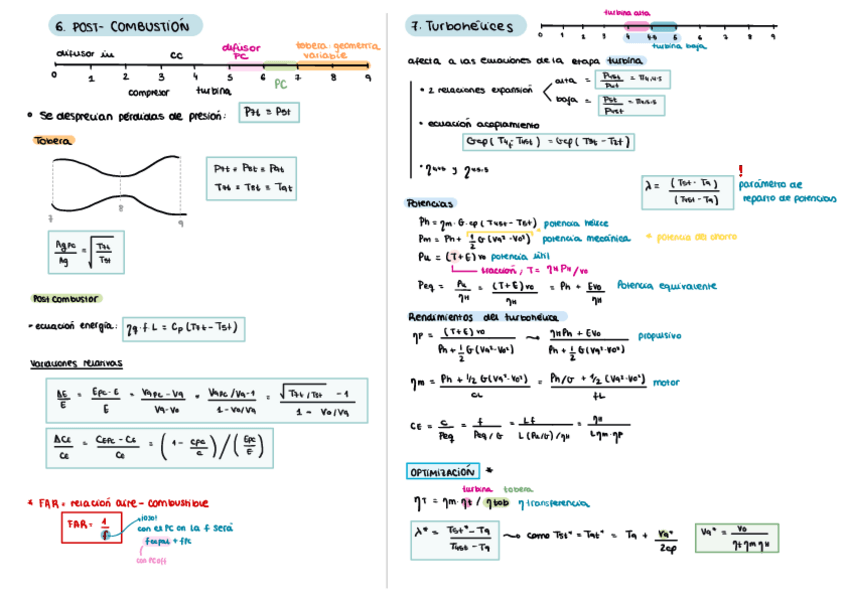 6. POST- COMBUSTIÓN
difusor in
CC
difusor PC
tobera: geometría variable
0 1 2 3 4 5 6 7 8 9
compresor
turbina
PC
• Se desprecian pérdidas de presión: P7t = P5t
Tobera
7 8 9
P7t = P8t = P9t
T7t = T8t = T9t
A8PC / A8 = √(T7t / T5t)
Post combustor
• ecuación energía: ηq·f·L = Cp (T7t - T5t)
Variaciones relativas
ΔE / E = (EPC - E) / E = (V9PC - V9) / (V9 - V0) = (V9PC / V9 - 1) / (1 - V0/V9) = (√(T7t / T5t) - 1) / (1 - V0/V9)
* FAR = relación aire - combustible
FAR = 1 / f
¡OJO!
con el PC on la f será
+ fPC
con PC off
7. Turbohélices
turbina alta
0 1 2 3 4 4.5 5 6 7 8
turbina baja
afecta a las ecuaciones de la etapa turbina
• 2 relaciones expansión
alta =
baja =
• ecuación acoplamiento
λ = (T5t - T9) / (T45t - T9)
!
parámetro de
reparto de potencias
Potencias
Ph = ηm · G · cp (T45t - T5t) potencia hélice
Pm = Ph + 1/2 G (V9² - V0²) potencia mecánica
* potencia del chorro
Pu = (T + E) v0 potencia útil
tracción, T = ηH Ph / v0
Peq = Pu / ηH = (T + E) v0 / ηH = Ph + E v0 / ηH Potencia equivalente
Rendimientos del turbohélice
ηp = (T + E) v0 / (Ph + 1/2 G (V9² - V0²)) → (ηH Ph + E v0) / (Ph + 1/2 G (V9² - V0²)) propulsivo
ηm = (Ph + 1/2 G (V9² - V0²)) / cL = (Ph/G + 1/2 (V9² - V0²)) / fL motor
CE = c / Peq = f / (Peq / G)
OPTIMIZACIÓN *
turbina tobera
ηT = ηm · ηt / ηtob η transferencia
λ* = (T5t* - T9) / (T45t - T9) → como T5t* = T9t* = T9 + V9* / 2cp
V9* = V0 / (ηt ηm ηH)